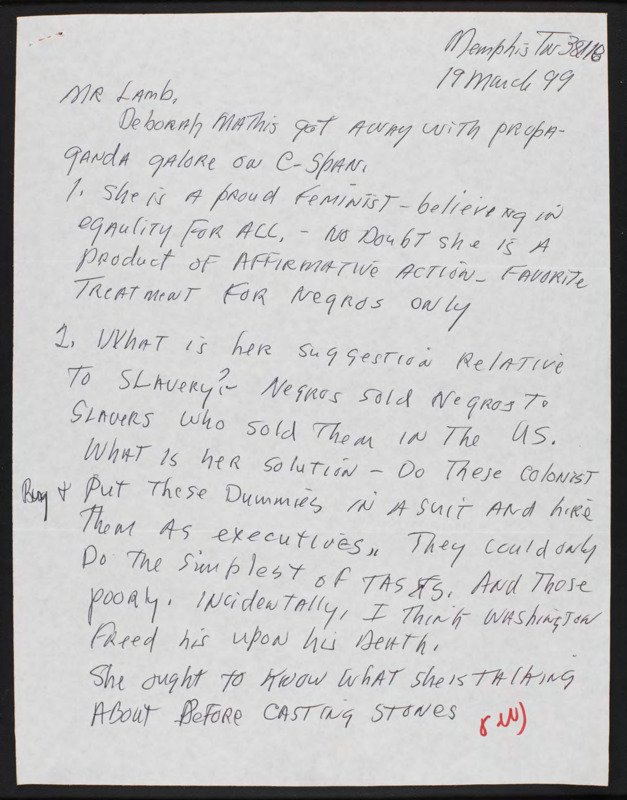 Memphis TN 38118
19 March 99
MR LAMB,
Deborah Mathis got away with propa-
ganda galore on C-SPAN.
1. She is a proud feminist - believeing in
egaulity for all. - No doubt she is a
product of affirmative action - favorite
treatment for Negros only
2. What is her suggestion relative
to slavery? - Negros sold Negros to
slavers who sold them in the US.
What is her solution - Do these colonist
Buy & put these dummies in a suit and hire
them as executives,, They could only
do the simplest of tasks, and those
poorly. Incidentally, I think Washington
freed his upon his death.
She ought to know what she is talking
about before casting stones